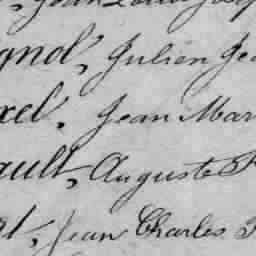 Jean Louis Josep
gnol, Julien Jea
xel, Jean Mar
ault, Auguste F
t, Jean Charles